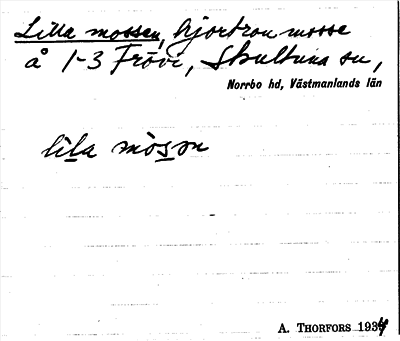 Lilla mossen, hjortronmosse
å 1-3 Frövi, Skultuna sn,
Norrbo hd, Västmanlands län
lila mòsɔn
A. THORFORS 1934